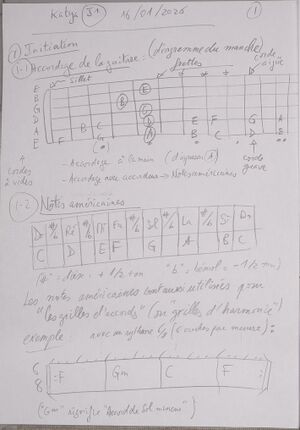 Katya J1 16/01/2026 1
1 Initiation
1-1 Accordage de la guitare : (diagramme du manche)
Sillet frettes corde aigüe
E
B
G
D
A
E F G
B C
D
E
A
B C
E F
G A
D
↑ cordes à vides
- Accordage à la main (diapason (A))
- Accordage avec accordeur → Notes américaines
corde grave
1-2 Notes américaines
Do #/b Ré #/b Mi Fa #/b Sol #/b La #/b Si Do
C D E F G A B C
"#" = dièse = + 1/2 ton "b" = bémol = - 1/2 ton)
Les notes américaines sont aussi utilisées pour
"les grilles d'accords" (ou "grilles d'harmonie")
exemple : avec un rythme 6/8 (6 croches par mesure) :
6 8 : F Gm C F :
("Gm" signifie "Accord de Sol mineur")